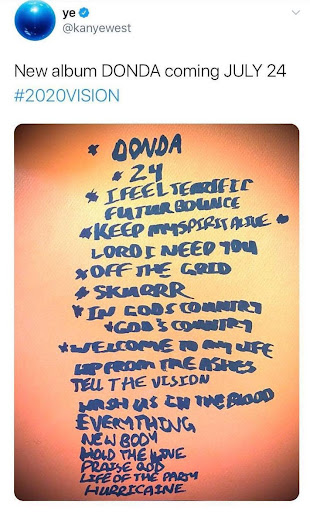 ye
@kanyewest
New album DONDA coming JULY 24
#2020VISION
* DONDA
* 24
* I FEEL TERRIFIC
FUTUR BOUNCE
*KEEP MY SPIRIT ALIVE *
LORD I NEED YOU
*OFF THE GRID
* SKURRR
*IN GODS COUNTRY
*GOD'S COUNTRY
*WELCOME TO MY LIFE
UP FROM THE ASHES
TELL THE VISION
WASH US IN THE BLOOD
EVERYTHING
NEW BODY
HOLD THE LINE
PRAISE GOD
LIFE OF THE PARTY
HURRICAINE